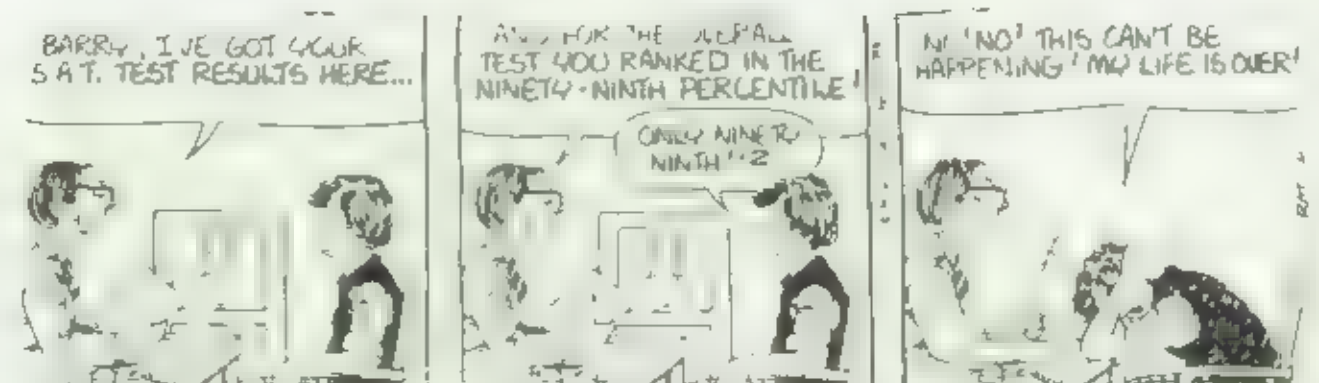 BARRY, I'VE GOT YOUR
S.A.T. TEST RESULTS HERE...
AND FOR THE OVERALL
TEST YOU RANKED IN THE
NINETY-NINTH PERCENTILE!
ONLY NINETY
NINTH
NO! THIS CAN'T BE
HAPPENING! MY LIFE IS OVER!